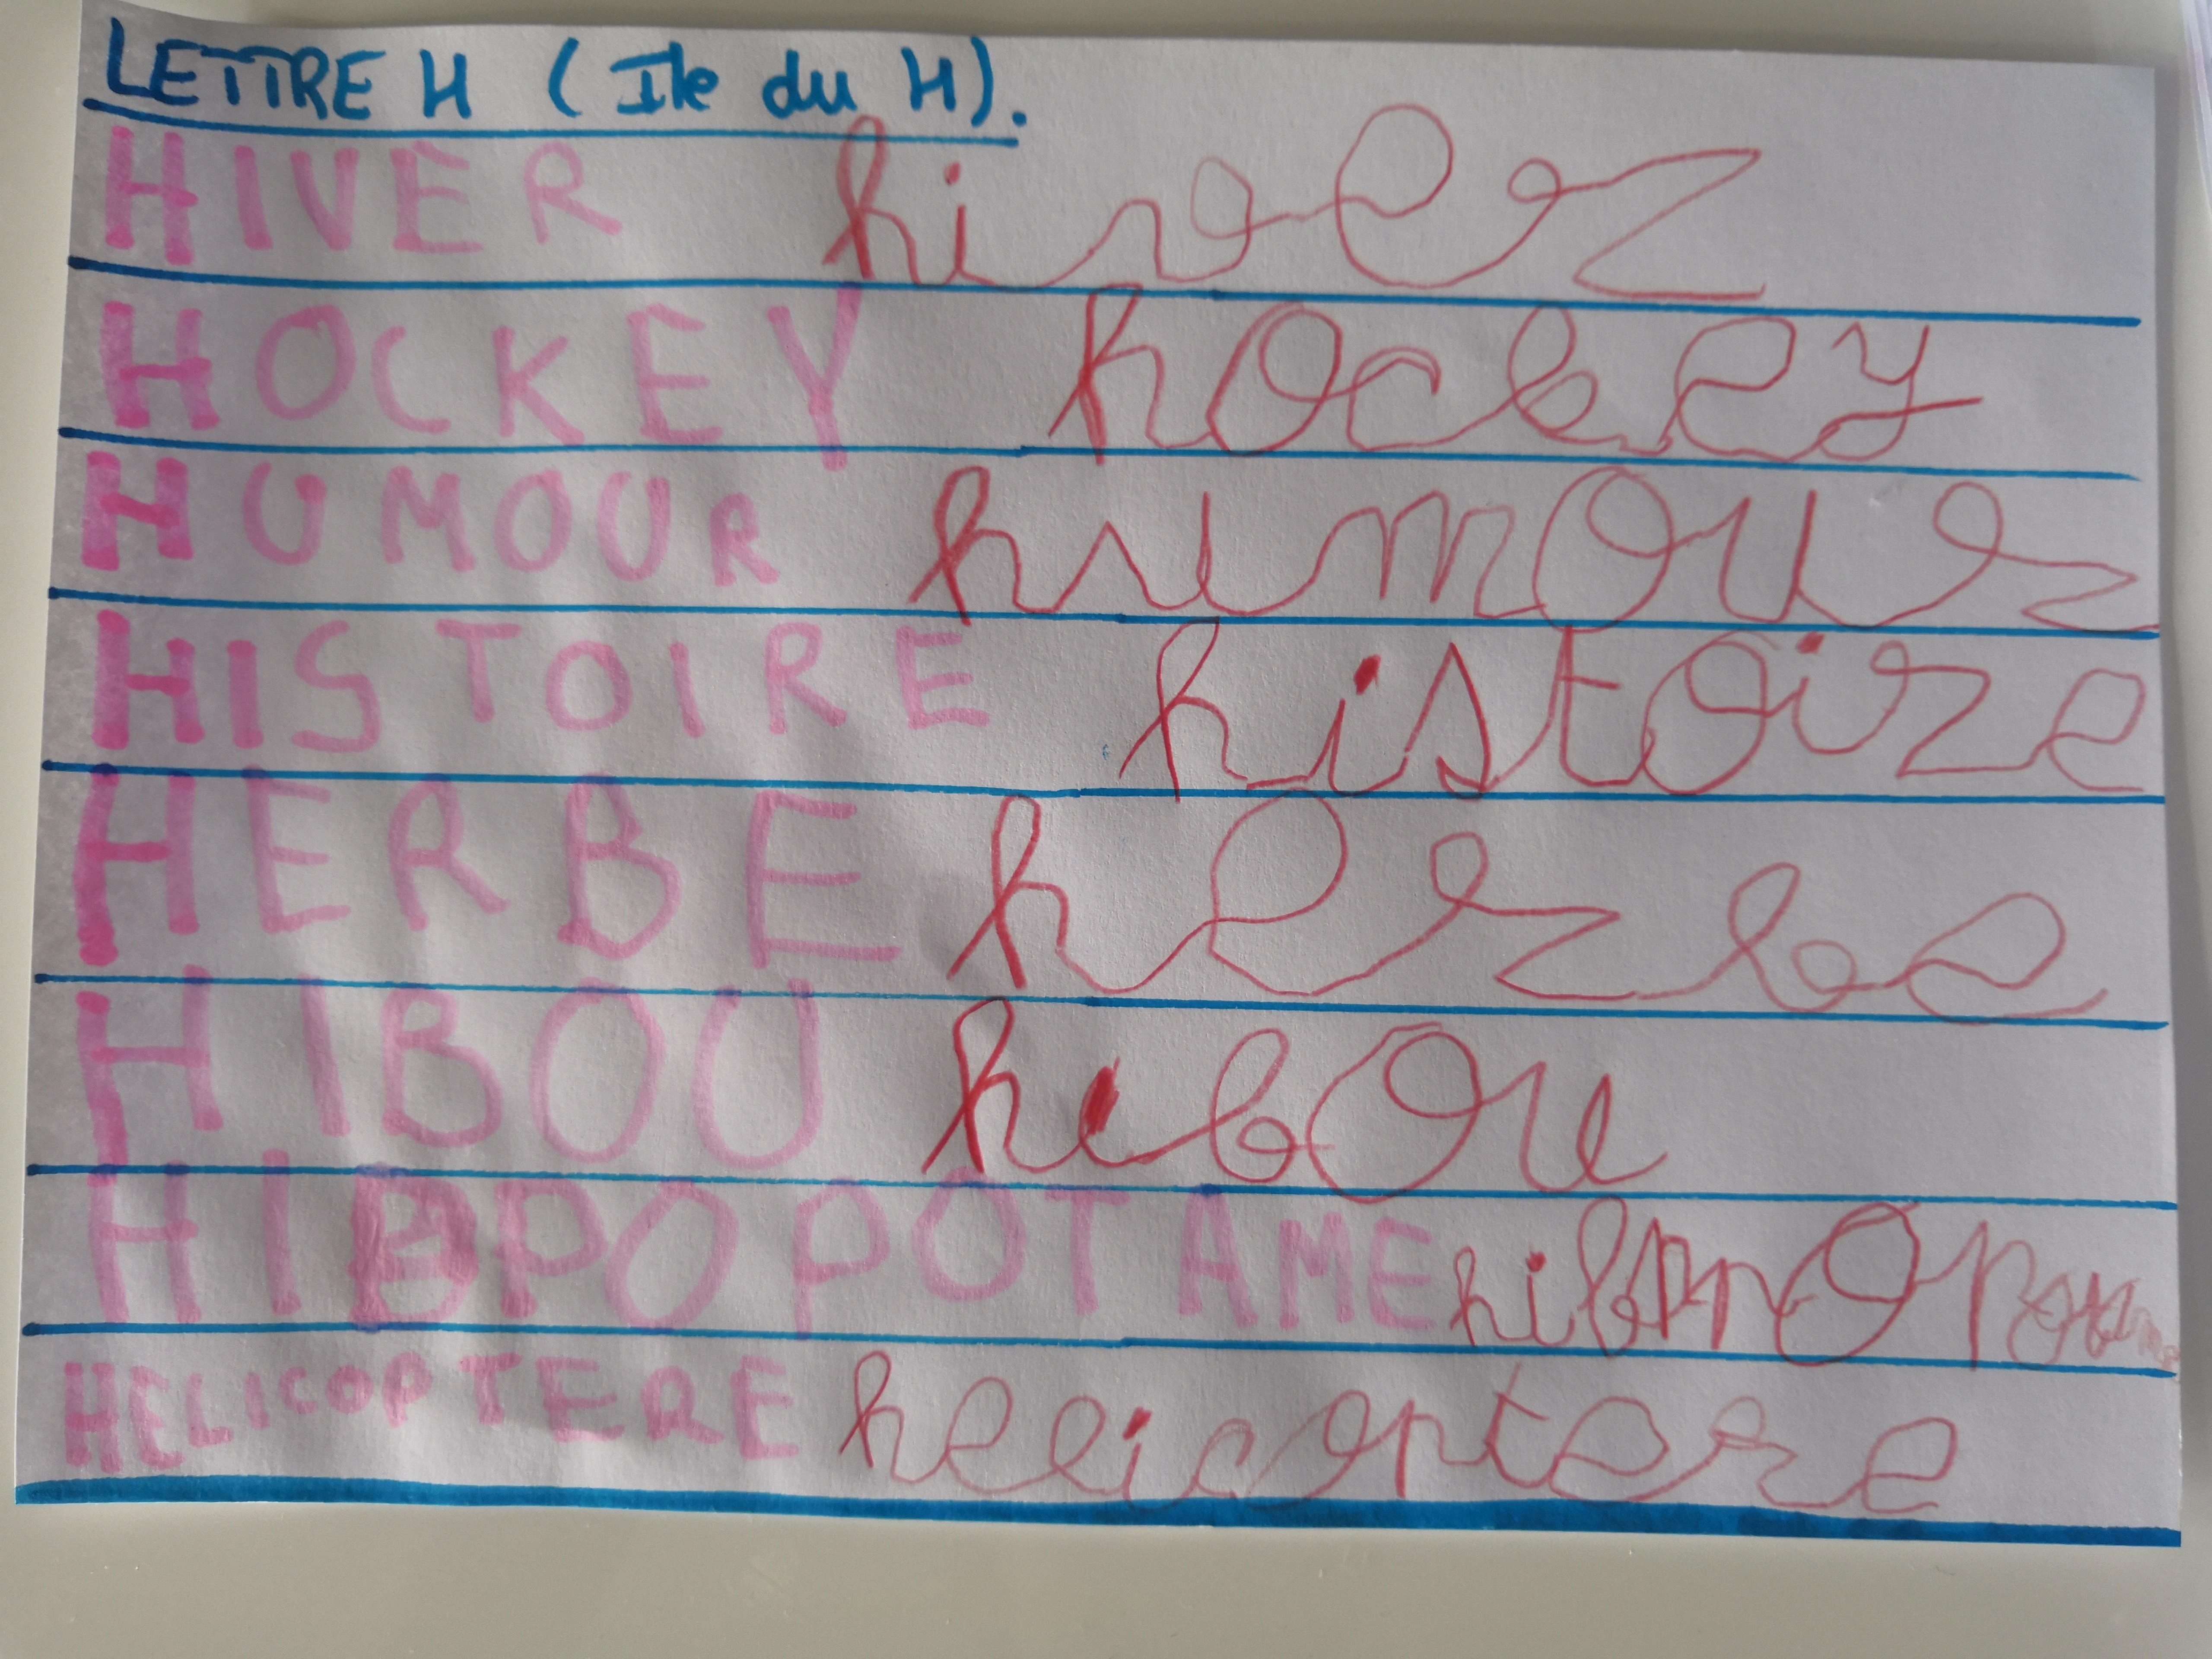 LETTRE H (Ile du H).
HIVER hiver
HOCKEY hockey
HUMOUR humour
HISTOIRE histoire
HERBE herbe
HIBOU hibou
HIPPOPOTAME
HELICOPTERE helicoptere